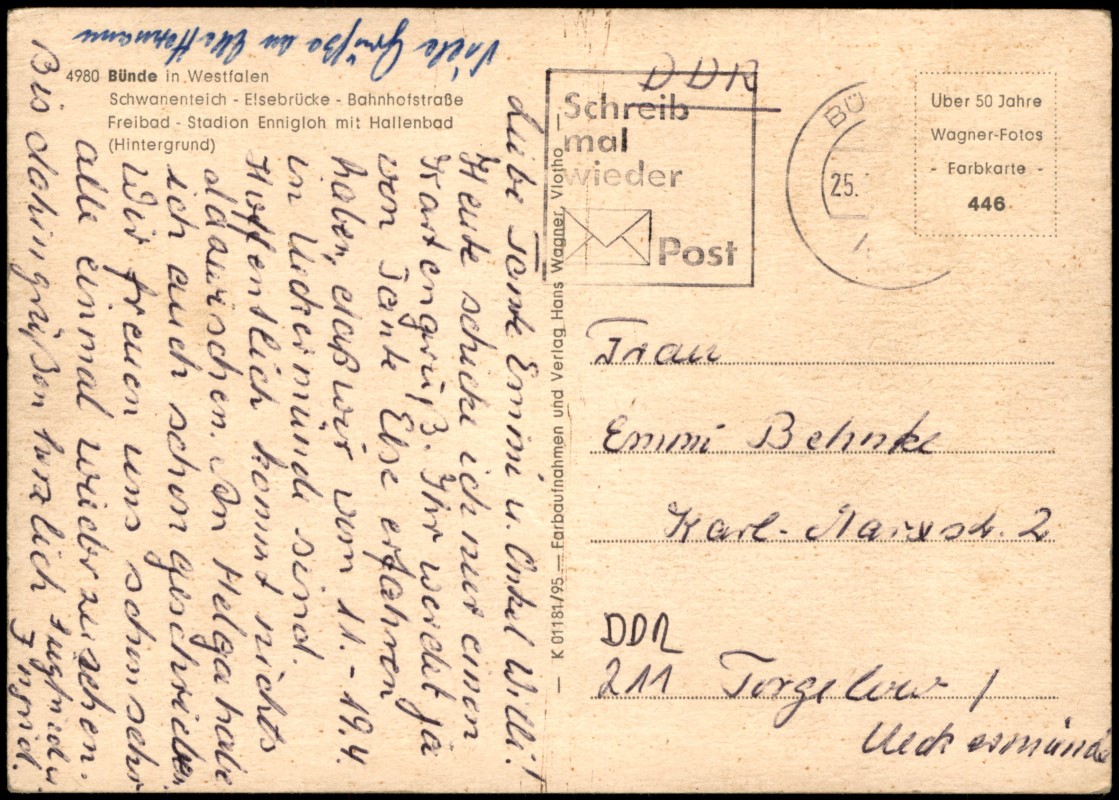 4980 Bünde in Westfalen
Schwanenteich - Elsebrücke - Bahnhofstraße
Freibad - Stadion Ennigloh mit Hallenbad
(Hintergrund)
Liebe Tante Emmi u. Onkel Willi!
Heute schicke ich nur einen
Kartengruß. Ihr werdet ja
von Tante Else erfahren
haben, daß wir vom 11. - 19.4
in Uckermünde sind.
Hoffentlich kommt nichts
dazwischen. An Helga habe
ich auch schon geschrieben
Wir freuen uns schon sehr
alle einmal wiederzusehen.
Bis dahin grüßen herzlich Siegfried u.
Ingrid.
Viele Grüße an Elke Hermann
K 01181/95 — Farbaufnahmen und Verlag Hans Wagner, Vlotho —
DDR
Schreib
mal
wieder
Post
BÜ
25.
Über 50 Jahre
Wagner-Fotos
- Farbkarte -
446
Frau
Emmi Behnke
Karl-Marxstr. 2
DDR
211 Torgelow /
Ueckermünde